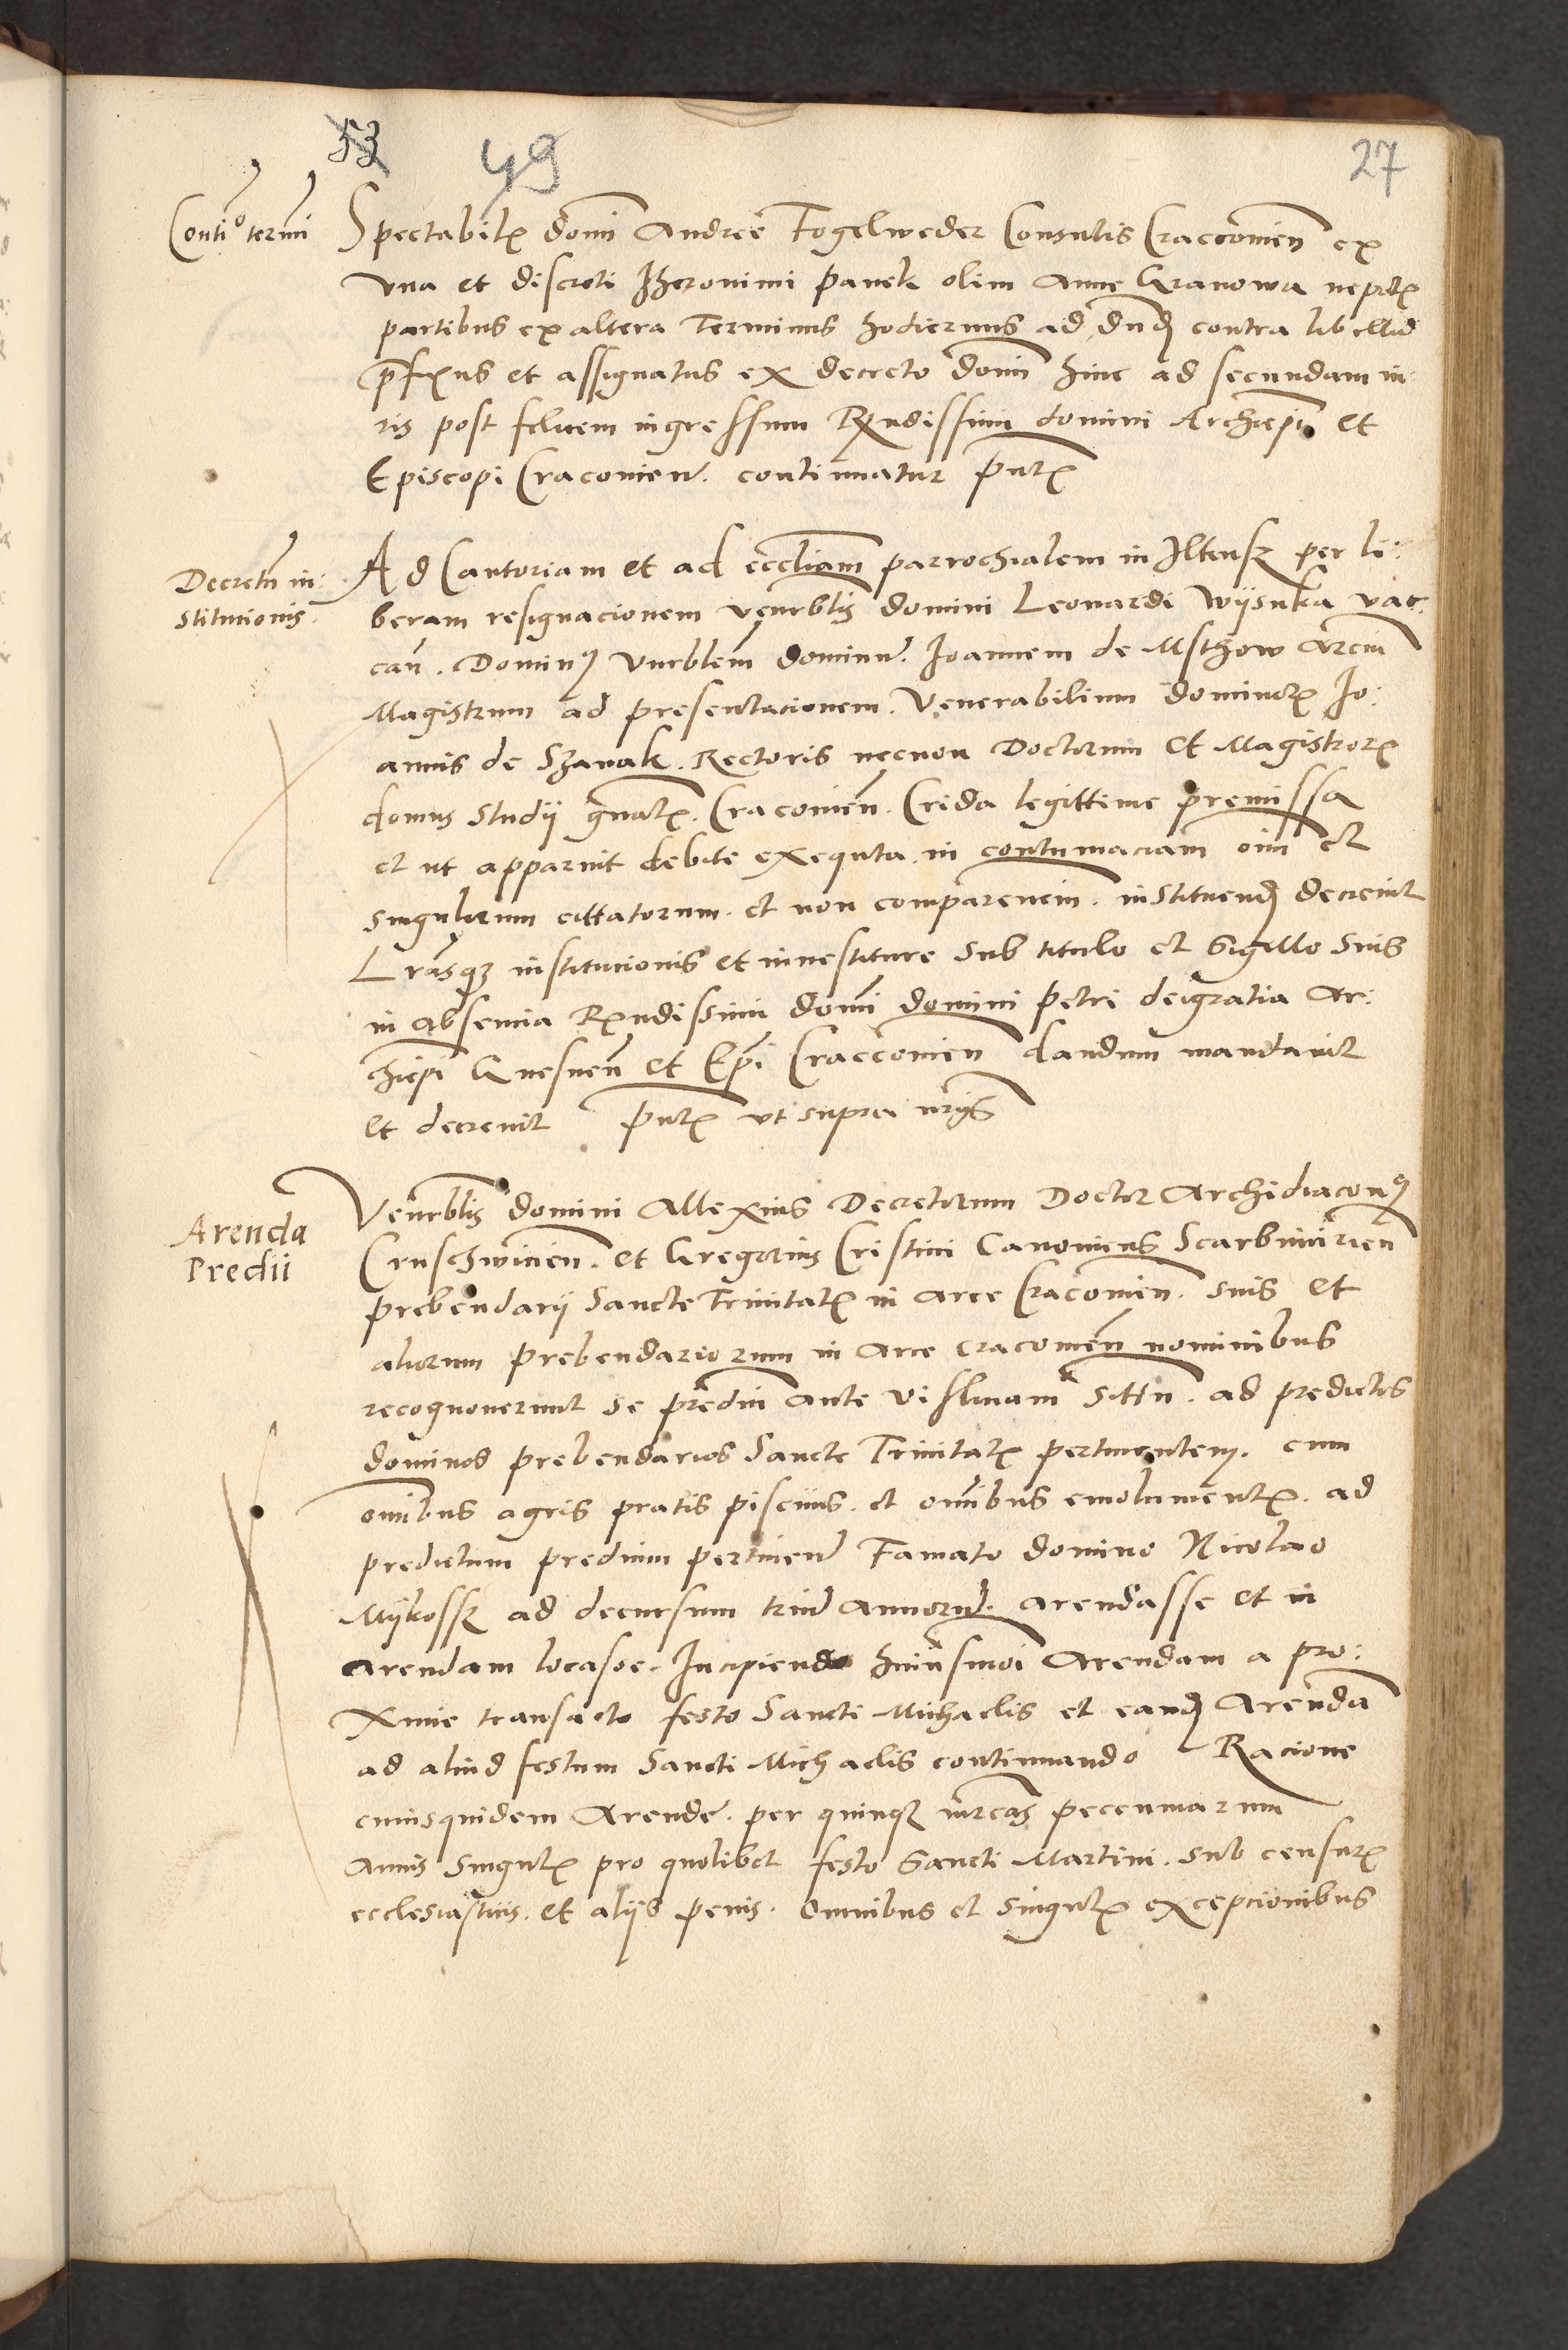 53 49 27
Conti° termi
Spectabilꝭ domi Andree Fogelweder Consulis Craccouien ex
vna et discreti Hieronimi Panek olim Anne Granowa nepotꝭ
partibus ex altera Terminus hodiernus ad dnd contra libellum
prefixus et assignatus ex decreto domi hinc ad secundam iu:
ris post felicem ingressum Rndissimi domini Archiepi et
Episcopi Cracouien. continuatur pntꝭ
Decretu in:
stitutionis.
Ad Cantoriam et ad eccliam parrochialem in Iltensz per li:
beram resignacionem venrblis domini Leonardi Wysuka vac:
can. Dominꝰ Vnrblem dominu. Joannem de Msthow Arcium
Magistrum ad presentacionem. Venerabilium dominorꝭ Jo:
annis de Szanak. Rectoris necnon Doctorum et Magistrorꝭ
domus Studij gnalꝭ. Cracouien. Crida legittime premissa
et ut apparuit debite exequta. in contumaciam oim et
singulorum cittatorum. et non comparencium. instituend decreuit
Lrasqꝫ institucionis et inuestiture sub titulo et Sigillo suis
in absencia Rndissimi domi domini Petri dei gratia Ar:
chiepi Gnesnen et Epi Craccouien dandum mandauit
et decreuit pntꝭ vt supra nrijs
Arenda
Predii
Venrblis domini Allexius Decretorum Doctor Archidiaconꝰ
Cruschwicien. et Gregorius Cristini Canonicus Scarbimirien
prebendarij Sancte Trinitatꝭ in arce Cracouien. suis et
aliorum prebendariorum in Arce Cracouien nominibus
recognouerunt se prediu ante Vislinam sittu. ad predictos
dominos prebendarios Sancte Trinitatꝭ pertinentem. cum
omibus agris pratis piscinis. et omibus emolumentꝭ. ad
predictum predium pertinen Famato domino Nicolao
Mykossz ad decursum triu annoru. arendasse et in
arendam locasse. Incipiendo huiusmoi Arendam a pro:
xime transacto festo Sancti Michaelis et eand Arenda
ad aliud festum Sancti Michaelis continuando Racione
cuiusquidem Arende. per quinqꝫ mrcas peccuniarum
Annis singulꝭ pro quolibet festo Sancti Martini. sub censurꝭ
ecclesiasticis. et alijs penis. Omnibus et singulꝭ excepcionibus